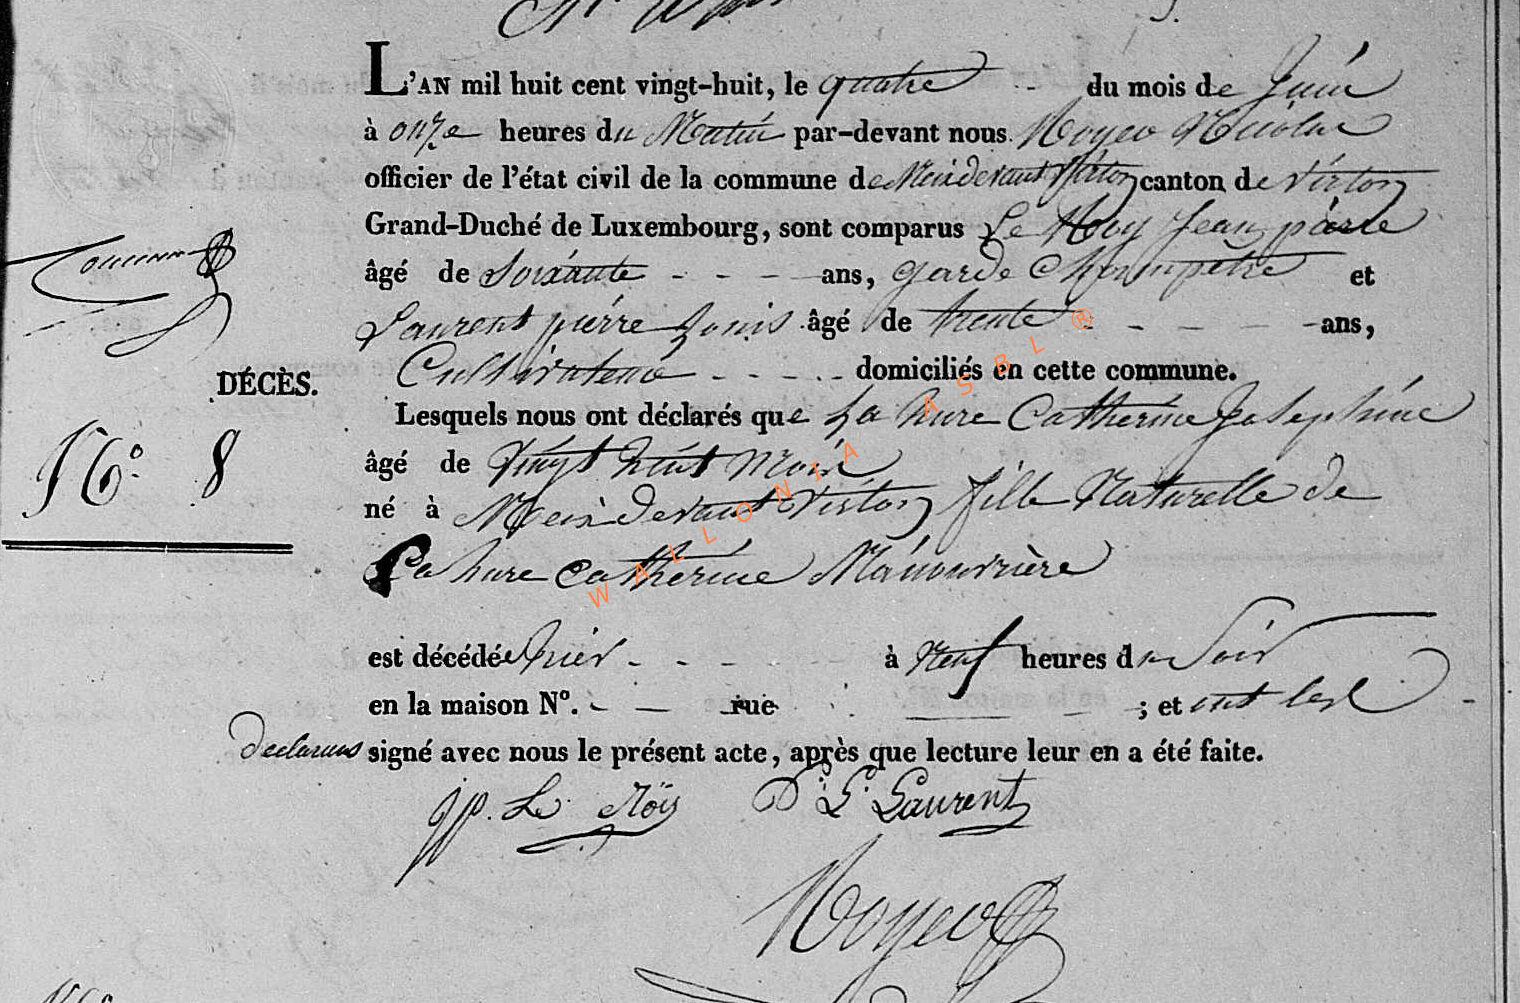 L'AN mil huit cent vingt-huit, le quatre du mois de Juin
à onze heures du Matin par-devant nous Noyer Nicolas
officier de l'état civil de la commune de Meixdevant Virton canton de Virton
Grand-Duché de Luxembourg, sont comparus Le Roy Jean pierre
âgé de Soixante - - - ans, garde Champetre et
Laurent pierre Louis âgé de trente - - - - ans,
Cultivateur - - - - domiciliés en cette commune.
DÉCÈS.
Lesquels nous ont déclarés que La hure Catherine Josephine
N°. 8
âgé de Vingt huit Mois
né à Meix devant Virton fille Naturelle de
La hure Catherine Manouvrière
est décédée hier - - - à Neuf heures du Soir
en la maison N°. - — rue — - ; et ont les
declarans signé avec nous le présent acte, après que lecture leur en a été faite.
jp. Le Roÿ P. L. Laurent
Noyer
WALLONIA ASBL ®